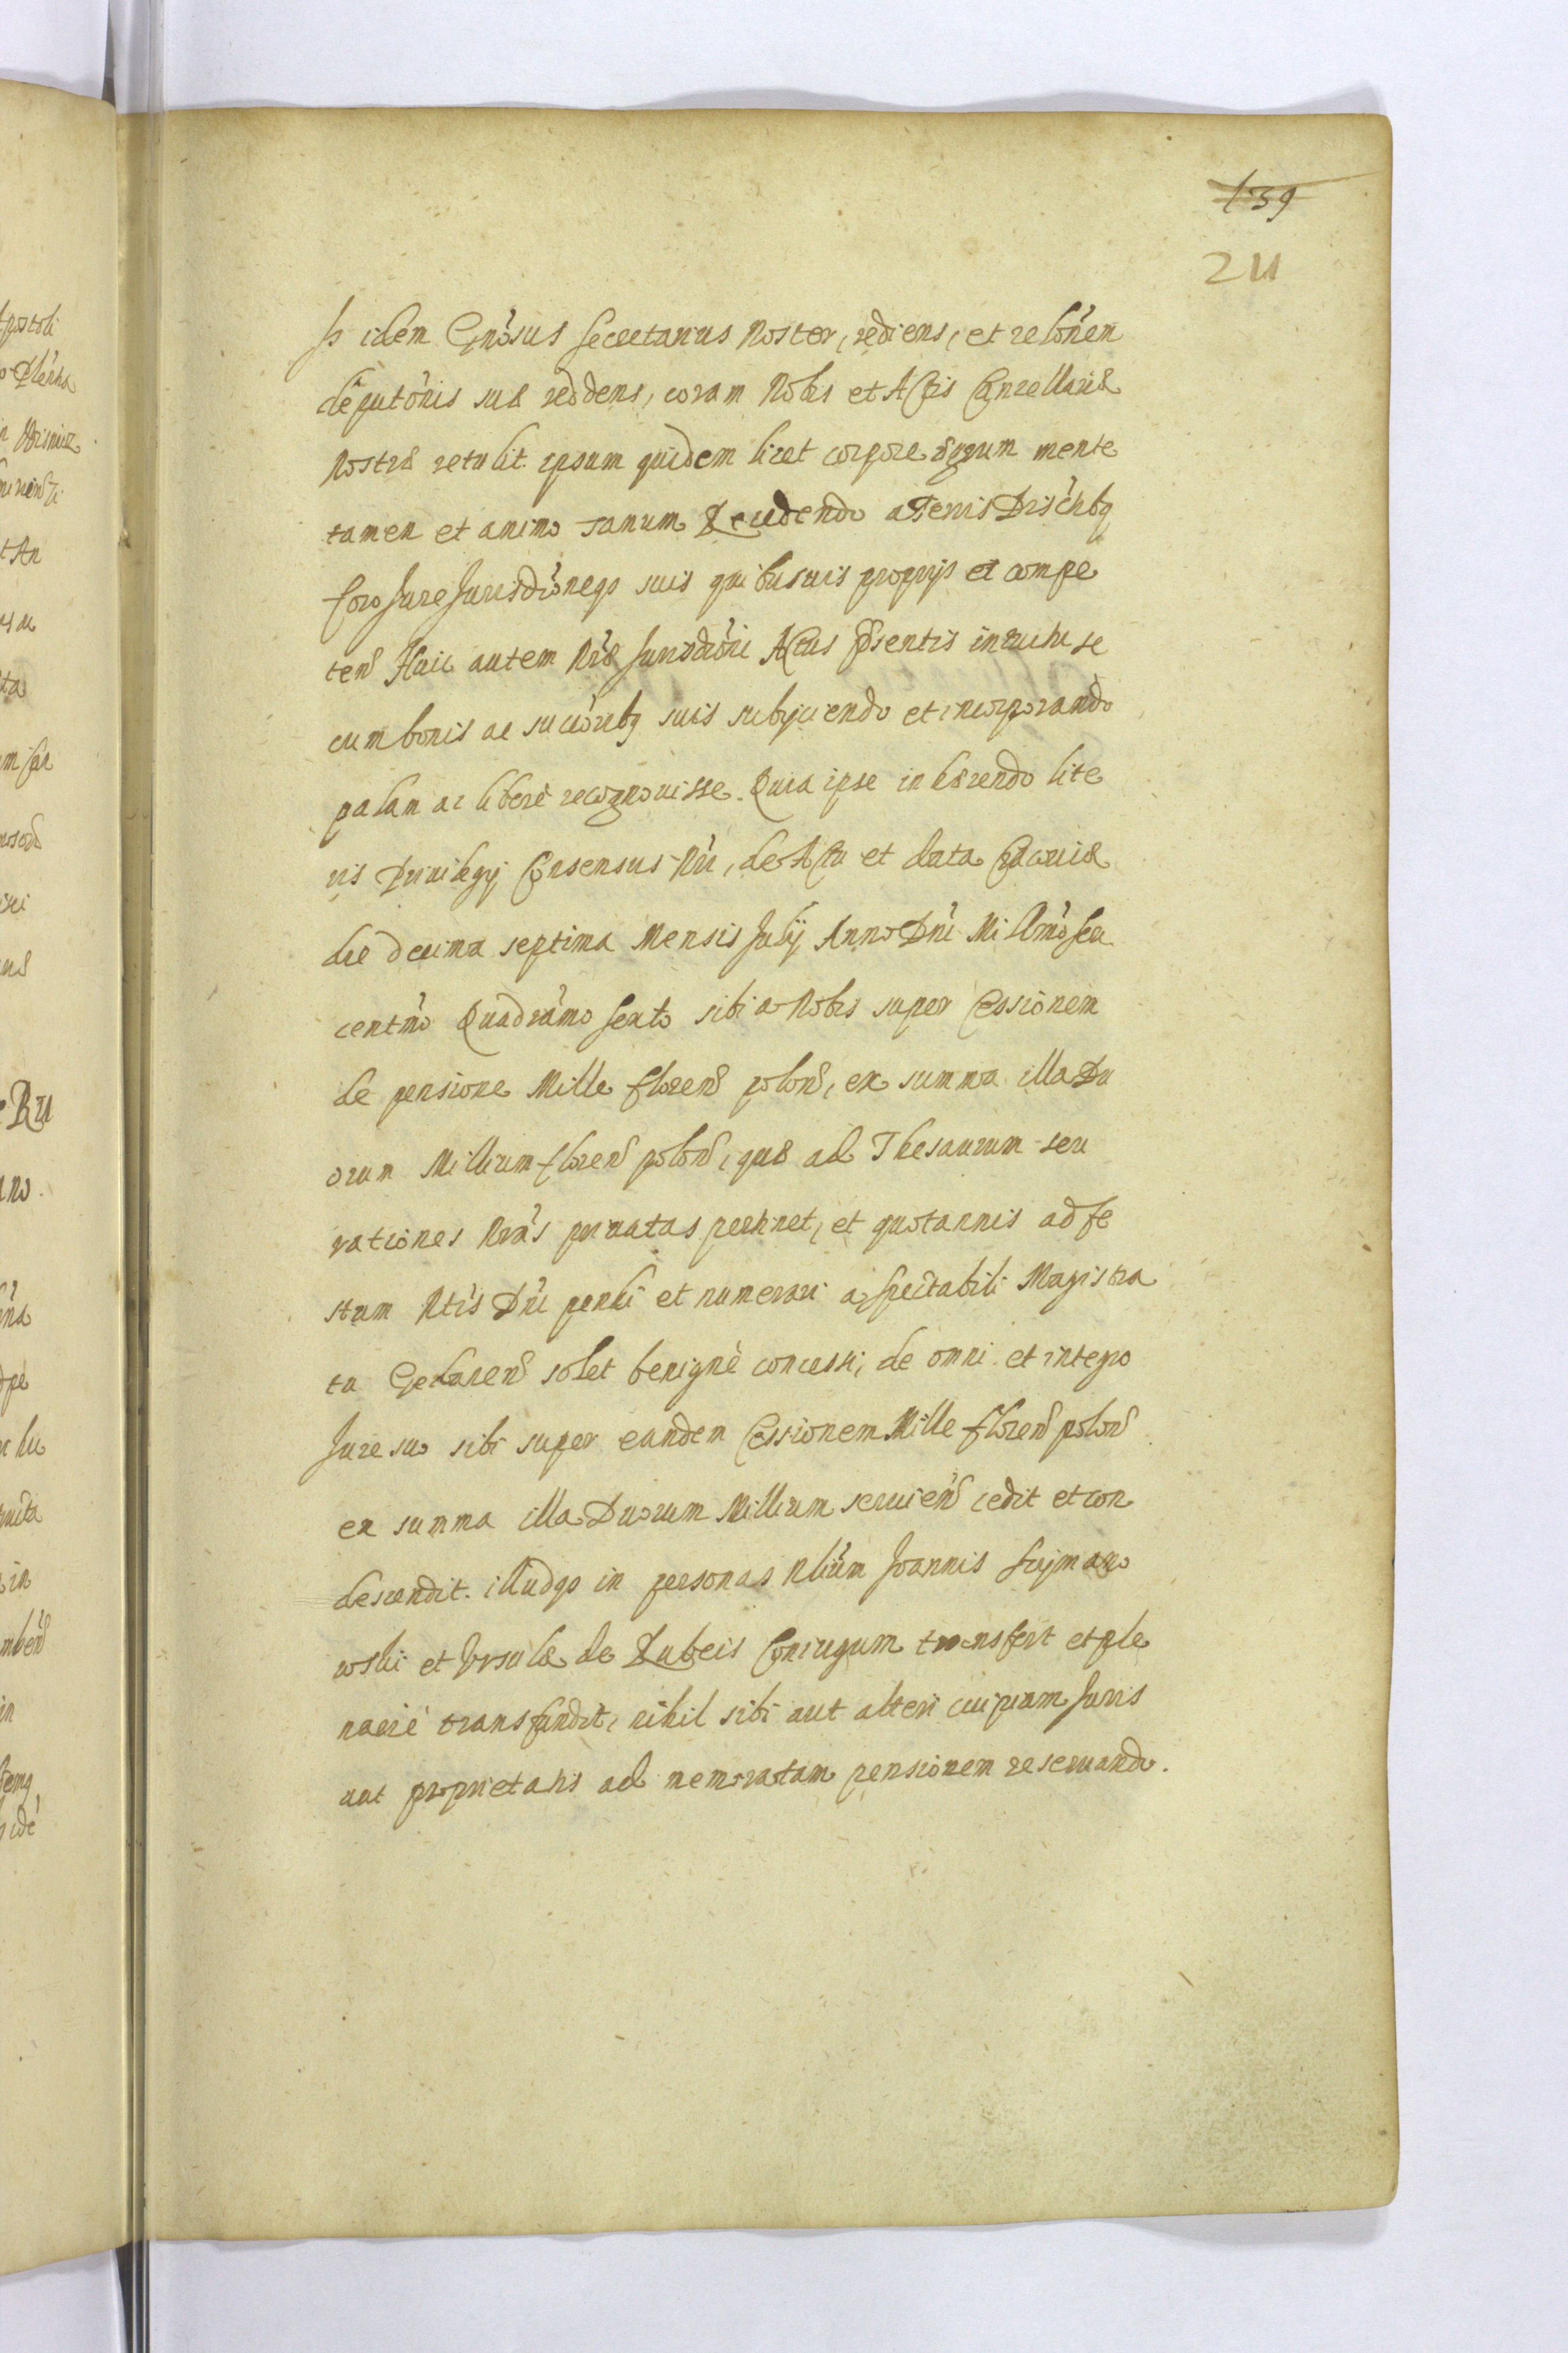 139
211
Is idem Gnosus Secretarius Noster, rediens, et relonem
deputonis suæ reddens, coram Nobis et Actis Cancellariæ
Nostræ retulit ipsum quidem licet corpore ægrum mente
tamen et animo sanum Recedendo a Terris Districtibq
foro Jure Jurisdioneqȝ suis quibusuis proprijs et compe
ten Huic autem Nræ Jurisdioni Actus Præsentis intuitu se
cum bonis ac successoribq suis subijciendo et incorporando
palam ac liberè recognouisse. Quia ipse inhærendo lite
ris Priuilegij Consensus Nri, de Actu et data Cracouiæ
die decima septima Mensis Julij Anno Dni Millmo Sex
centmo Quadramo Sexto sibi a Nobis super Cessionem
de pensione Mille floren polon, ex summa illa Du
orum Millium floren polon, quæ ad Thesaurum seu
rationes Nras priuatas pertinet, et quotannis ad fe
stum Ntis Dni pendi et numerari a Spectabili Magistra
tu Gedanen solet benignè concessi, de omni et integro
Jure suo sibi super eandem Cessionem Mille floren polon
ex summa illa Duorum Millium seruien cedit et con
descendit. illudqȝ in personas Nbilium Joannis Sujmano
wski et Vrsulæ de Rubeis Coniugum transfert et ple
nariè transfundit, nihil sibi aut alteri cuipiam Juris
aut proprietatis ad memoratam pensionem reseruando.